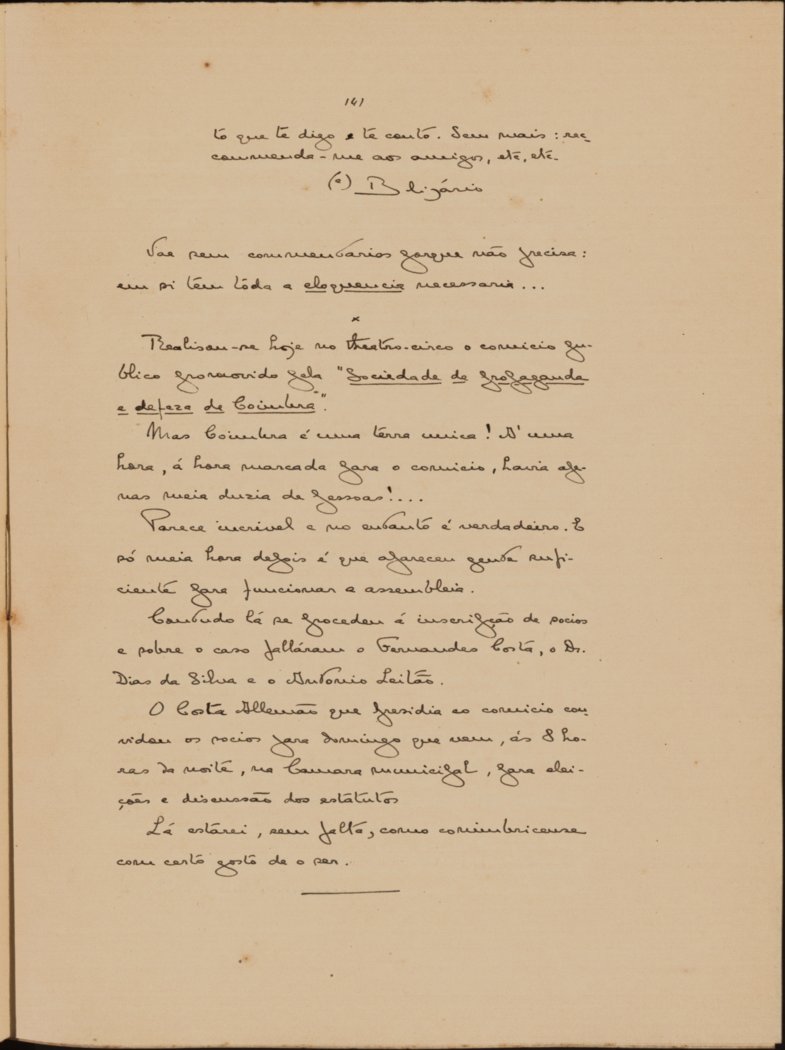 141
to que te digo e te conto. Sem mais: rec-
commenda-me aos amigos, etc, etc.
(a) Blizário
Vae sem commentarios porque não precisa:
em si têm tôda a eloquencia necessaria...
x
Realisou-se hoje no theatro-circo o comicio pu-
blico promovido pela "Sociedade de propaganda
e defeza de Coimbra".
Mas Coimbra é uma terra unica! A' uma
hora, á hora marcada para o comicio, havia ape-
nas meia duzia de pessoas!...
Parece incrivel e no entanto é verdadeiro. E
só meia hora depois é que appareceu gente sufi-
ciente para funccionar a assembleia.
Contudo lá se procedeu á inscripção de socios
e sobre o caso falláram o Fernandes Costa, o Dr.
Dias da Silva e o Antonio Leitão.
O Costa Allemão que presidia ao comicio con-
vidou os socios para domingo que vem, ás 8 ho-
ras da noite, na Camara municipal, para elei-
ções e discussão dos estatutos
Lá estarei, sem falta, como conimbricense
com certo gosto de o ser.